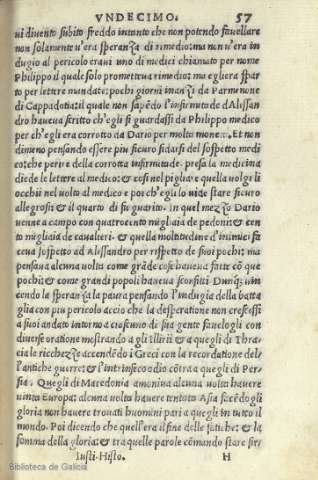 VNDECIMO. 57
ui diuento subito freddo intanto che non potendo fauellare
non solamente n'era speranza di rimedio: ma non u'era in
dugio al pericolo eraui uno di medici chiamato per nome
Philippo il quale solo prometteua rimedio: ma egli era spar
to per lettere mandate: pochi giorni inanzi da Parmenone
di Cappadotia: il quale non sapēdo l'infirmitade d'Alissan
dro haueua scritto ch'egli si guardassi da Philippo medico
per ch'egli era corrotto da Dario per molta moneta. Et non
dimeno pensando essere piu sicuro fidarsi del sospetto medi
co: che perire della corrotta infirmitade. presa la medicina
diede le lettere al medico: & cosi nel pigliare quella uolse li
occhi nel uolto al medico e poi ch'egli lo uide stare sicuro
allegrossi: & il quarto di fu guarito. In quel mezzo Dario
uenne a campo con quatrocento migliaia de pedoni: & cen
to migliaia de caualieri. & quella moltitudine d'inimici fa
ceua sospetto ad Alessandro per rispetto de suoi pochi: ma
pensaua alcuna uolta come grāde cose haueua fatte cō que
pochi: & come grandi popoli haueua sconfitti Dunq; uin
cendo la speranza la paura pensando l'indugia della batta
glia con piu pericolo accio che la desperatione non crescessi
a suoi andato intorno a ciascuno di sua gente fauelogli con
diuerse oratione mostrando a gli Illirii & a quegli di Thra
cia le ricchezze accendēdo i Greci con la recordatione dele
l'antiche guerre: & l'intrinseco odio cōtra a quegli di Per
sia. Quegli di Macedonia amoniua alcuna uolte hauere
uinta Europa: alcuna uolta hauere tentato Asia facēdogli
gloria non hauere trouati huomini pari a quegli in tutto il
mondo. Poi dicendo che quell'era il fine delle fatiche: & la
somma della gloria: & tra quelle parole cōmando stare fer
Iusti. Histo. H
Biblioteca de Galicia